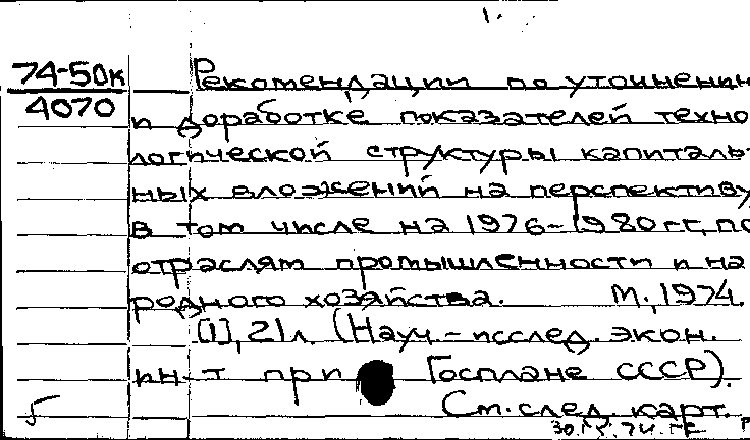 1.
74-50к
4070
Рекомендации по уточнению
и доработке показателей техно
логической структуры капиталь-
ных вложений на перспективу
в том числе на 1976-1980 гг. по
отраслям промышленности и на
родного хозяйства. М., 1974.
[1], 21 л. (Науч.-исслед. экон.
ин-т при Госплане СССР).
См. след. карт.
5